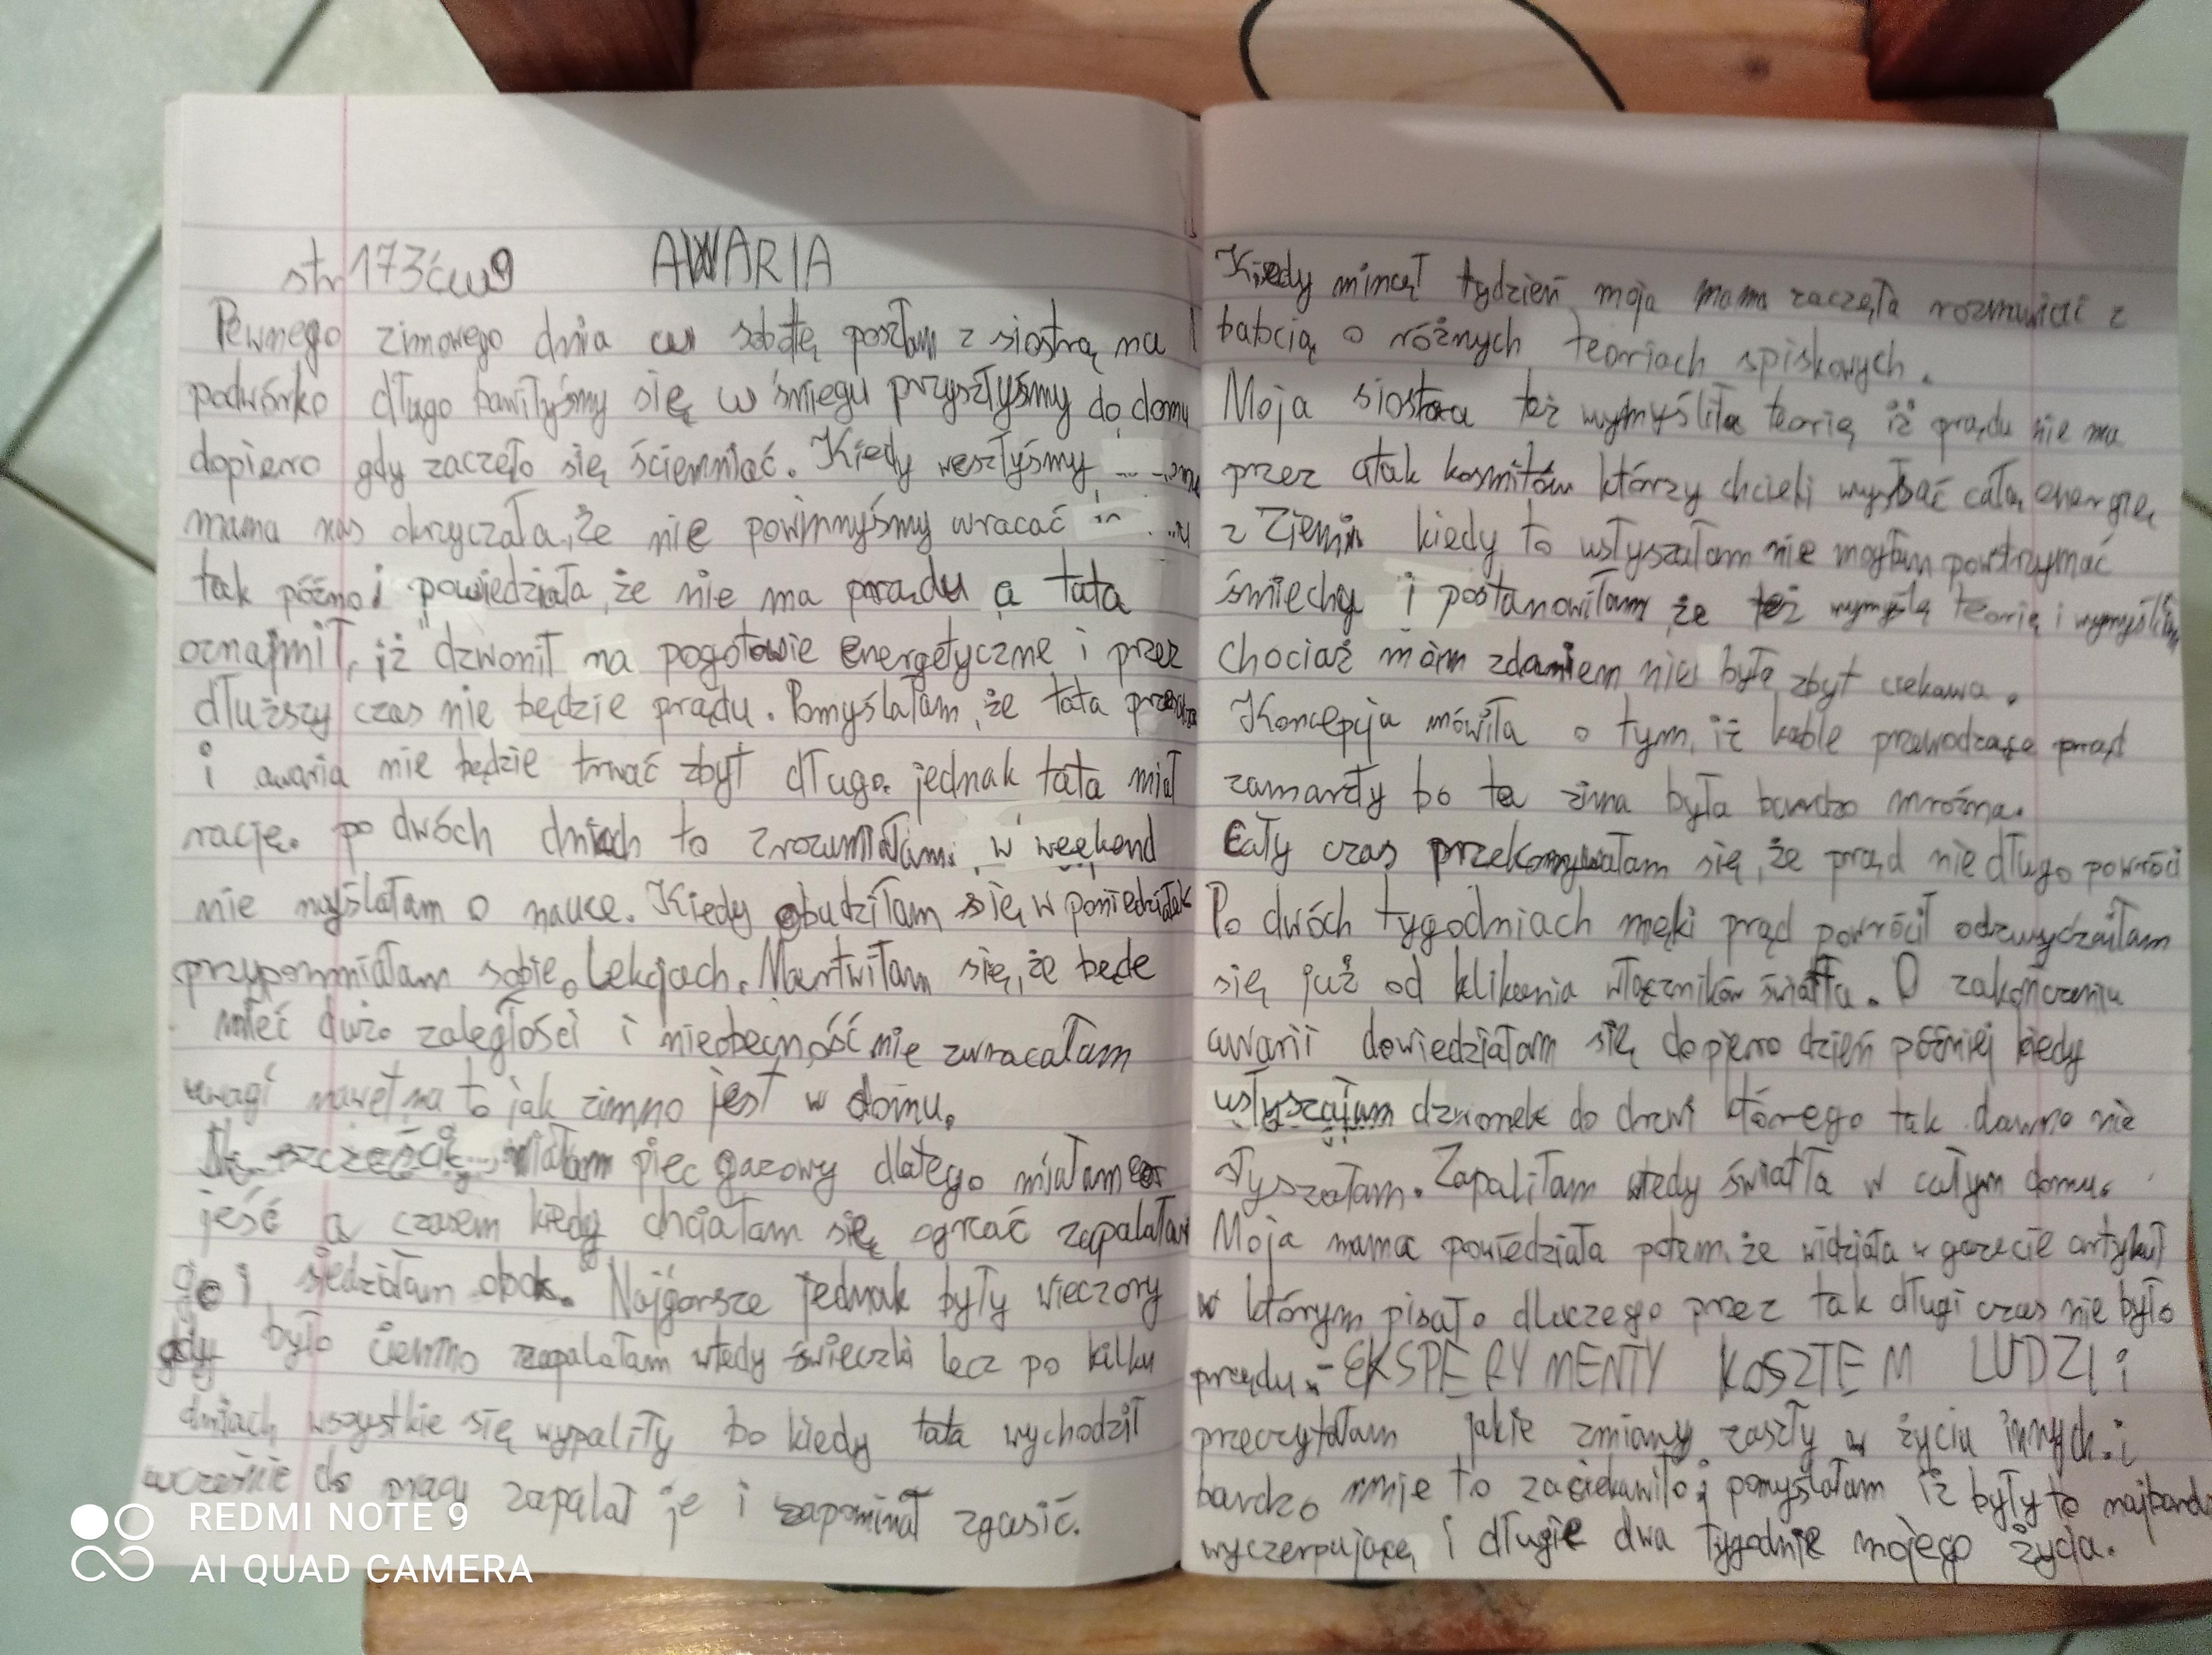 str 173 ćw 9 AWARIA
Pewnego zimowego dnia w sobotę poszłam z siostrą na
podwórko długo bawiłyśmy się w śniegu przyszłyśmy do domu
dopiero gdy zaczęło się ściemniać. Kiedy weszłyśmy
mama nas okrzyczała, że nie powinnyśmy wracać
tak późno i powiedziała, że nie ma prądu a tata
oznajmił, iż dzwonił na pogotowie energetyczne i przez
dłuższy czas nie będzie prądu. Pomyślałam, że tata
i awaria nie będzie trwać zbyt długo. jednak tata miał
rację. po dwóch dniach to zrozumiałam. w weekend
nie myślałam o nauce. Kiedy obudziłam się w poniedziałek
przypomniałam sobie o lekcjach. Martwiłam się, że będe
mieć dużo zaległości i nieobecność nie zwracałam
uwagi nawet na to jak zimno jest w domu.
Na szczęście miałam piec gazowy dlatego miałam co
jeść a czasem kiedy chciałam się ogrzać zapalałam
go i siedziałam obok. Najgorsze jednak były wieczory
gdy było ciemno zapalałam wtedy świeczki lecz po kilku
dniach wszystkie się wypaliły bo kiedy tata wychodził
wcześnie do pracy zapalał je i zapominał zgasić.
Kiedy minął tydzień moja mama zaczęła rozmawiać z
babcią o różnych teoriach spiskowych.
Moja siostra też wymyśliła teorię iż prądu nie ma
przez atak kosmitów którzy chcieli wyssać całą energię
z Ziemi kiedy to usłyszałam nie mogłam powstrzymać
śmiechu i postanowiłam, że też wymyślę teorię i wymyśliłam
chociaż moim zdaniem nie była zbyt ciekawa.
Koncepcja mówiła o tym, iż kable przewodzące prąd
zamarzły bo ta zima była bardzo mroźna.
Cały czas przekonywałam się, że prąd nie długo powróci
Po dwóch tygodniach męki prąd powrócił odzwyczaiłam
się już od klikania włączników światła. O zakończeniu
awarii dowiedziałam się dopiero dzień później kiedy
usłyszałam dzwonek do drzwi którego tak dawno nie
słyszałam. Zapaliłam wtedy światła w całym domu.
Moja mama powiedziała potem, że widziała w gazecie artykuł
w którym pisało dlaczego przez tak długi czas nie było
prądu. - EKSPERYMENTY KOSZTEM LUDZI i
przeczytałam jakie zmiany zaszły w życiu innych. i
bardzo mnie to zaciekawiło i pomyślałam iż były to
wyczerpujące i długie dwa tygodnie mojego życia.
REDMI NOTE 9
AI QUAD CAMERA